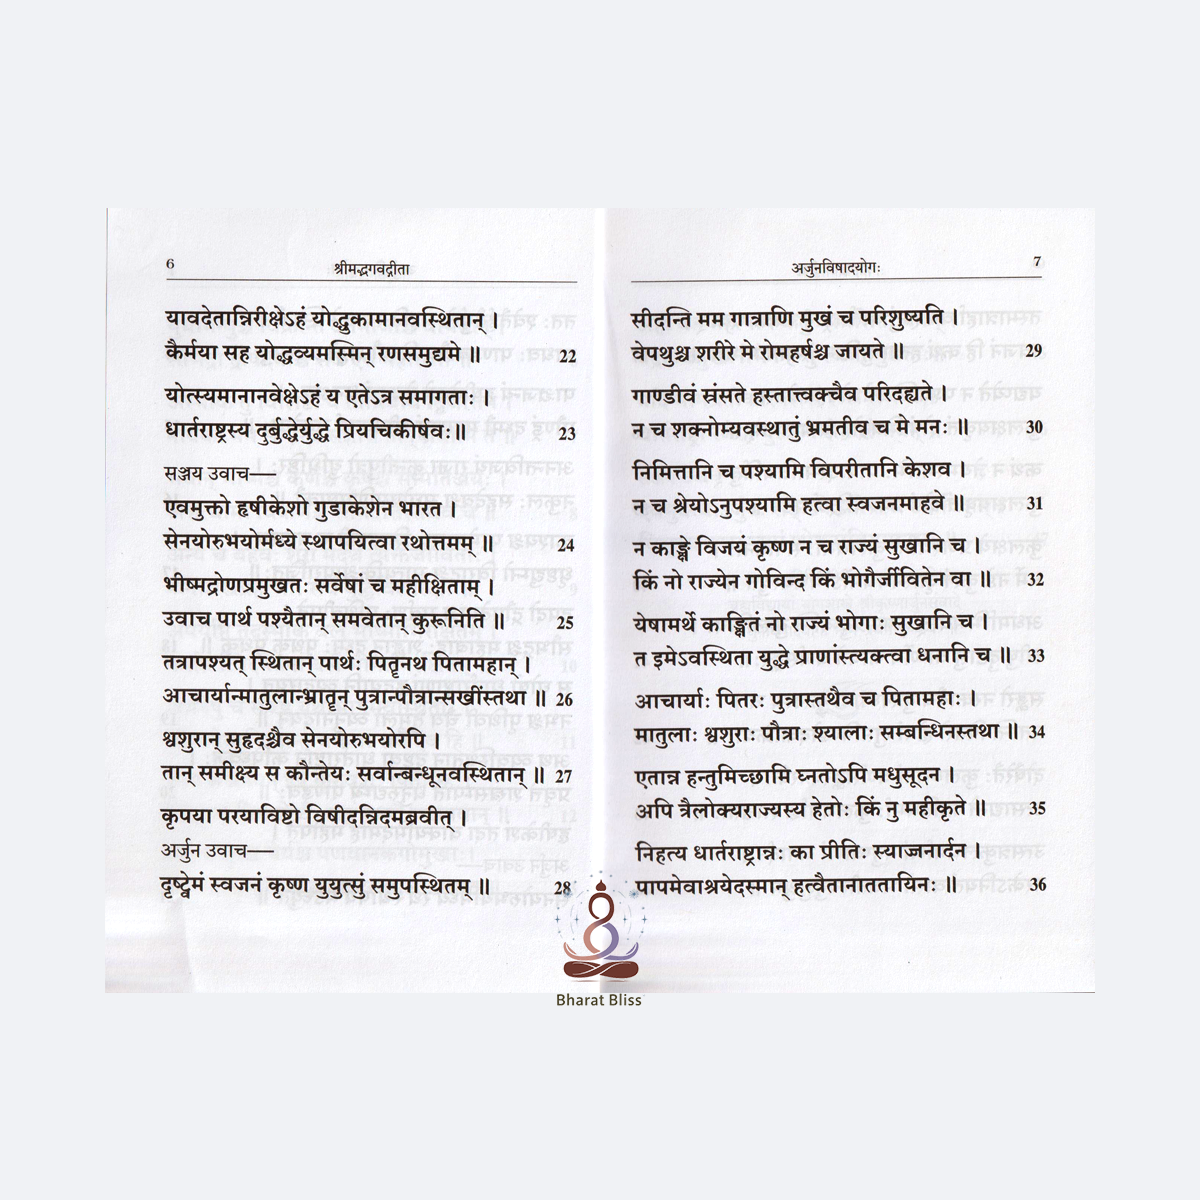 6
श्रीमद्भगवद्गीता
यावदेतान्निरीक्षेऽहं योद्धुकामानवस्थितान् ।
कैर्मया सह योद्धव्यमस्मिन् रणसमुद्यमे ॥ 22
योत्स्यमानानवेक्षेऽहं य एतेऽत्र समागताः ।
धार्तराष्ट्रस्य दुर्बुद्धेर्युद्धे प्रियचिकीर्षवः॥ 23
सञ्जय उवाच—
एवमुक्तो हृषीकेशो गुडाकेशेन भारत ।
सेनयोरुभयोर्मध्ये स्थापयित्वा रथोत्तमम् ॥ 24
भीष्मद्रोणप्रमुखतः सर्वेषां च महीक्षिताम् ।
उवाच पार्थ पश्यैतान् समवेतान् कुरूनिति ॥ 25
तत्रापश्यत् स्थितान् पार्थः पितॄनथ पितामहान् ।
आचार्यान्मातुलान्भ्रातॄन् पुत्रान्पौत्रान्सखींस्तथा ॥ 26
श्वशुरान् सुहृदश्चैव सेनयोरुभयोरपि ।
तान् समीक्ष्य स कौन्तेयः सर्वान्बन्धूनवस्थितान् ॥ 27
कृपया परयाविष्टो विषीदन्निदमब्रवीत् ।
अर्जुन उवाच—
दृष्ट्वेमं स्वजनं कृष्ण युयुत्सुं समुपस्थितम् ॥ 28
अर्जुनविषादयोगः
7
सीदन्ति मम गात्राणि मुखं च परिशुष्यति ।
वेपथुश्च शरीरे मे रोमहर्षश्च जायते ॥ 29
गाण्डीवं स्रंसते हस्तात्त्वक्चैव परिदह्यते ।
न च शक्नोम्यवस्थातुं भ्रमतीव च मे मनः ॥ 30
निमित्तानि च पश्यामि विपरीतानि केशव ।
न च श्रेयोऽनुपश्यामि हत्वा स्वजनमाहवे ॥ 31
न काङ्क्षे विजयं कृष्ण न च राज्यं सुखानि च ।
किं नो राज्येन गोविन्द किं भोगैर्जीवितेन वा ॥ 32
येषामर्थे काङ्क्षितं नो राज्यं भोगाः सुखानि च ।
त इमेऽवस्थिता युद्धे प्राणांस्त्यक्त्वा धनानि च ॥ 33
आचार्याः पितरः पुत्रास्तथैव च पितामहाः ।
मातुलाः श्वशुराः पौत्राः श्यालाः सम्बन्धिनस्तथा ॥ 34
एतान्न हन्तुमिच्छामि घ्नतोऽपि मधुसूदन ।
अपि त्रैलोक्यराज्यस्य हेतोः किं नु महीकृते ॥ 35
निहत्य धार्तराष्ट्रान्नः का प्रीतिः स्याज्जनार्दन ।
पापमेवाश्रयेदस्मान् हत्वैतानाततायिनः ॥ 36
Bharat Bliss